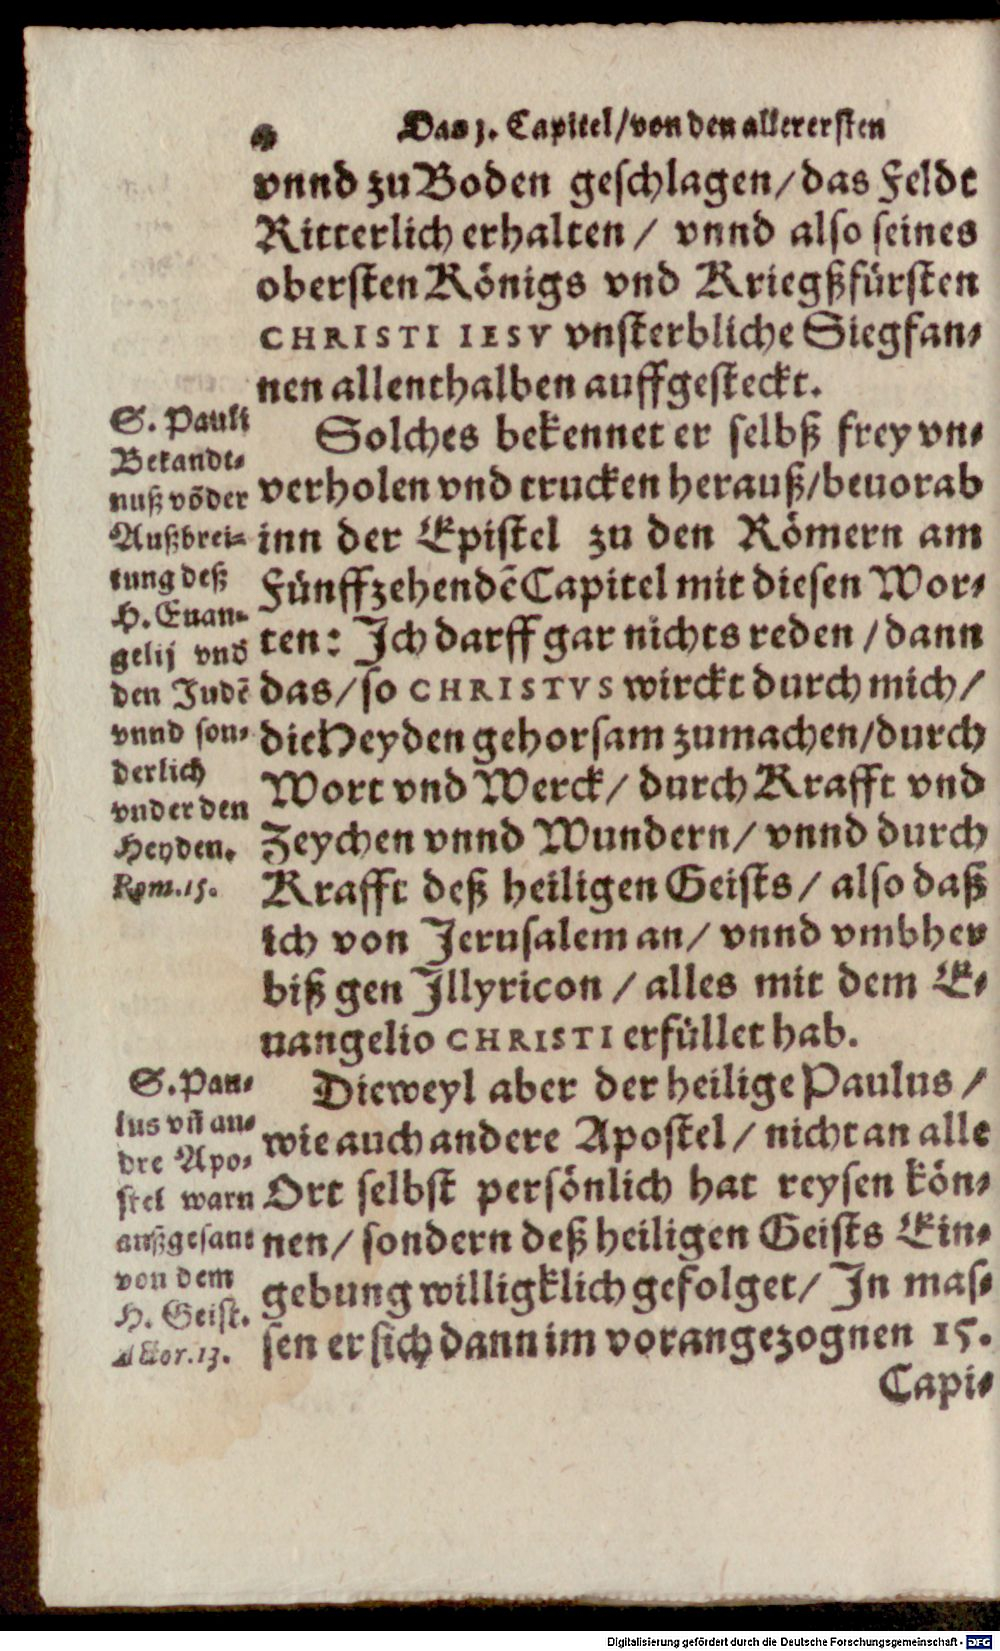 Das 1. Capitel/von den allerersten
vnnd zu Boden geschlagen/das Feldt
Ritterlich erhalten / vnnd also seines
obersten Königs vnd Kriegßfürsten
CHRISTI IESV vnsterbliche Siegfan⸗
nen allenthalben auffgesteckt.
S. Pauli
Bekandt⸗
nuß võ der
Außbrei⸗
tung deß
H. Euan⸗
gelij vnd
den Judẽ
vnnd son⸗
derlich
vnder den
Heyden.
Rom.15.
Solches bekennet er selbß frey vn⸗
verholen vnd trucken herauß/beuorab
inn der Epistel zu den Römern am
Fünffzehendẽ Capitel mit diesen Wor⸗
ten: Ich darff gar nichts reden /dann
das/so CHRISTVS wirckt durch mich/
die Heyden gehorsam zumachen/durch
Wort vnd Werck/ durch Krafft vnd
Zeychen vnnd Wundern/ vnnd durch
Krafft deß heiligen Geists/ also daß
ich von Jerusalem an/ vnnd vmbher
biß gen Illyricon / alles mit dem E⸗
uangelio CHRISTI erfüllet hab.
S. Pau⸗
lus vñ an⸗
dre Apo⸗
stel warn
außgesant
von dem
H. Geist.
Actor.13.
Dieweyl aber der heilige Paulus /
wie auch andere Apostel/ nicht an alle
Ort selbst persönlich hat reysen kön⸗
nen/ sondern deß heiligen Geists Ein⸗
gebung willigklich gefolget/ In mas⸗
sen er sich dann im vorangezognen 15.
Capi⸗
Digitalisierung gefördert durch die Deutsche Forschungsgemeinschaft - DFG